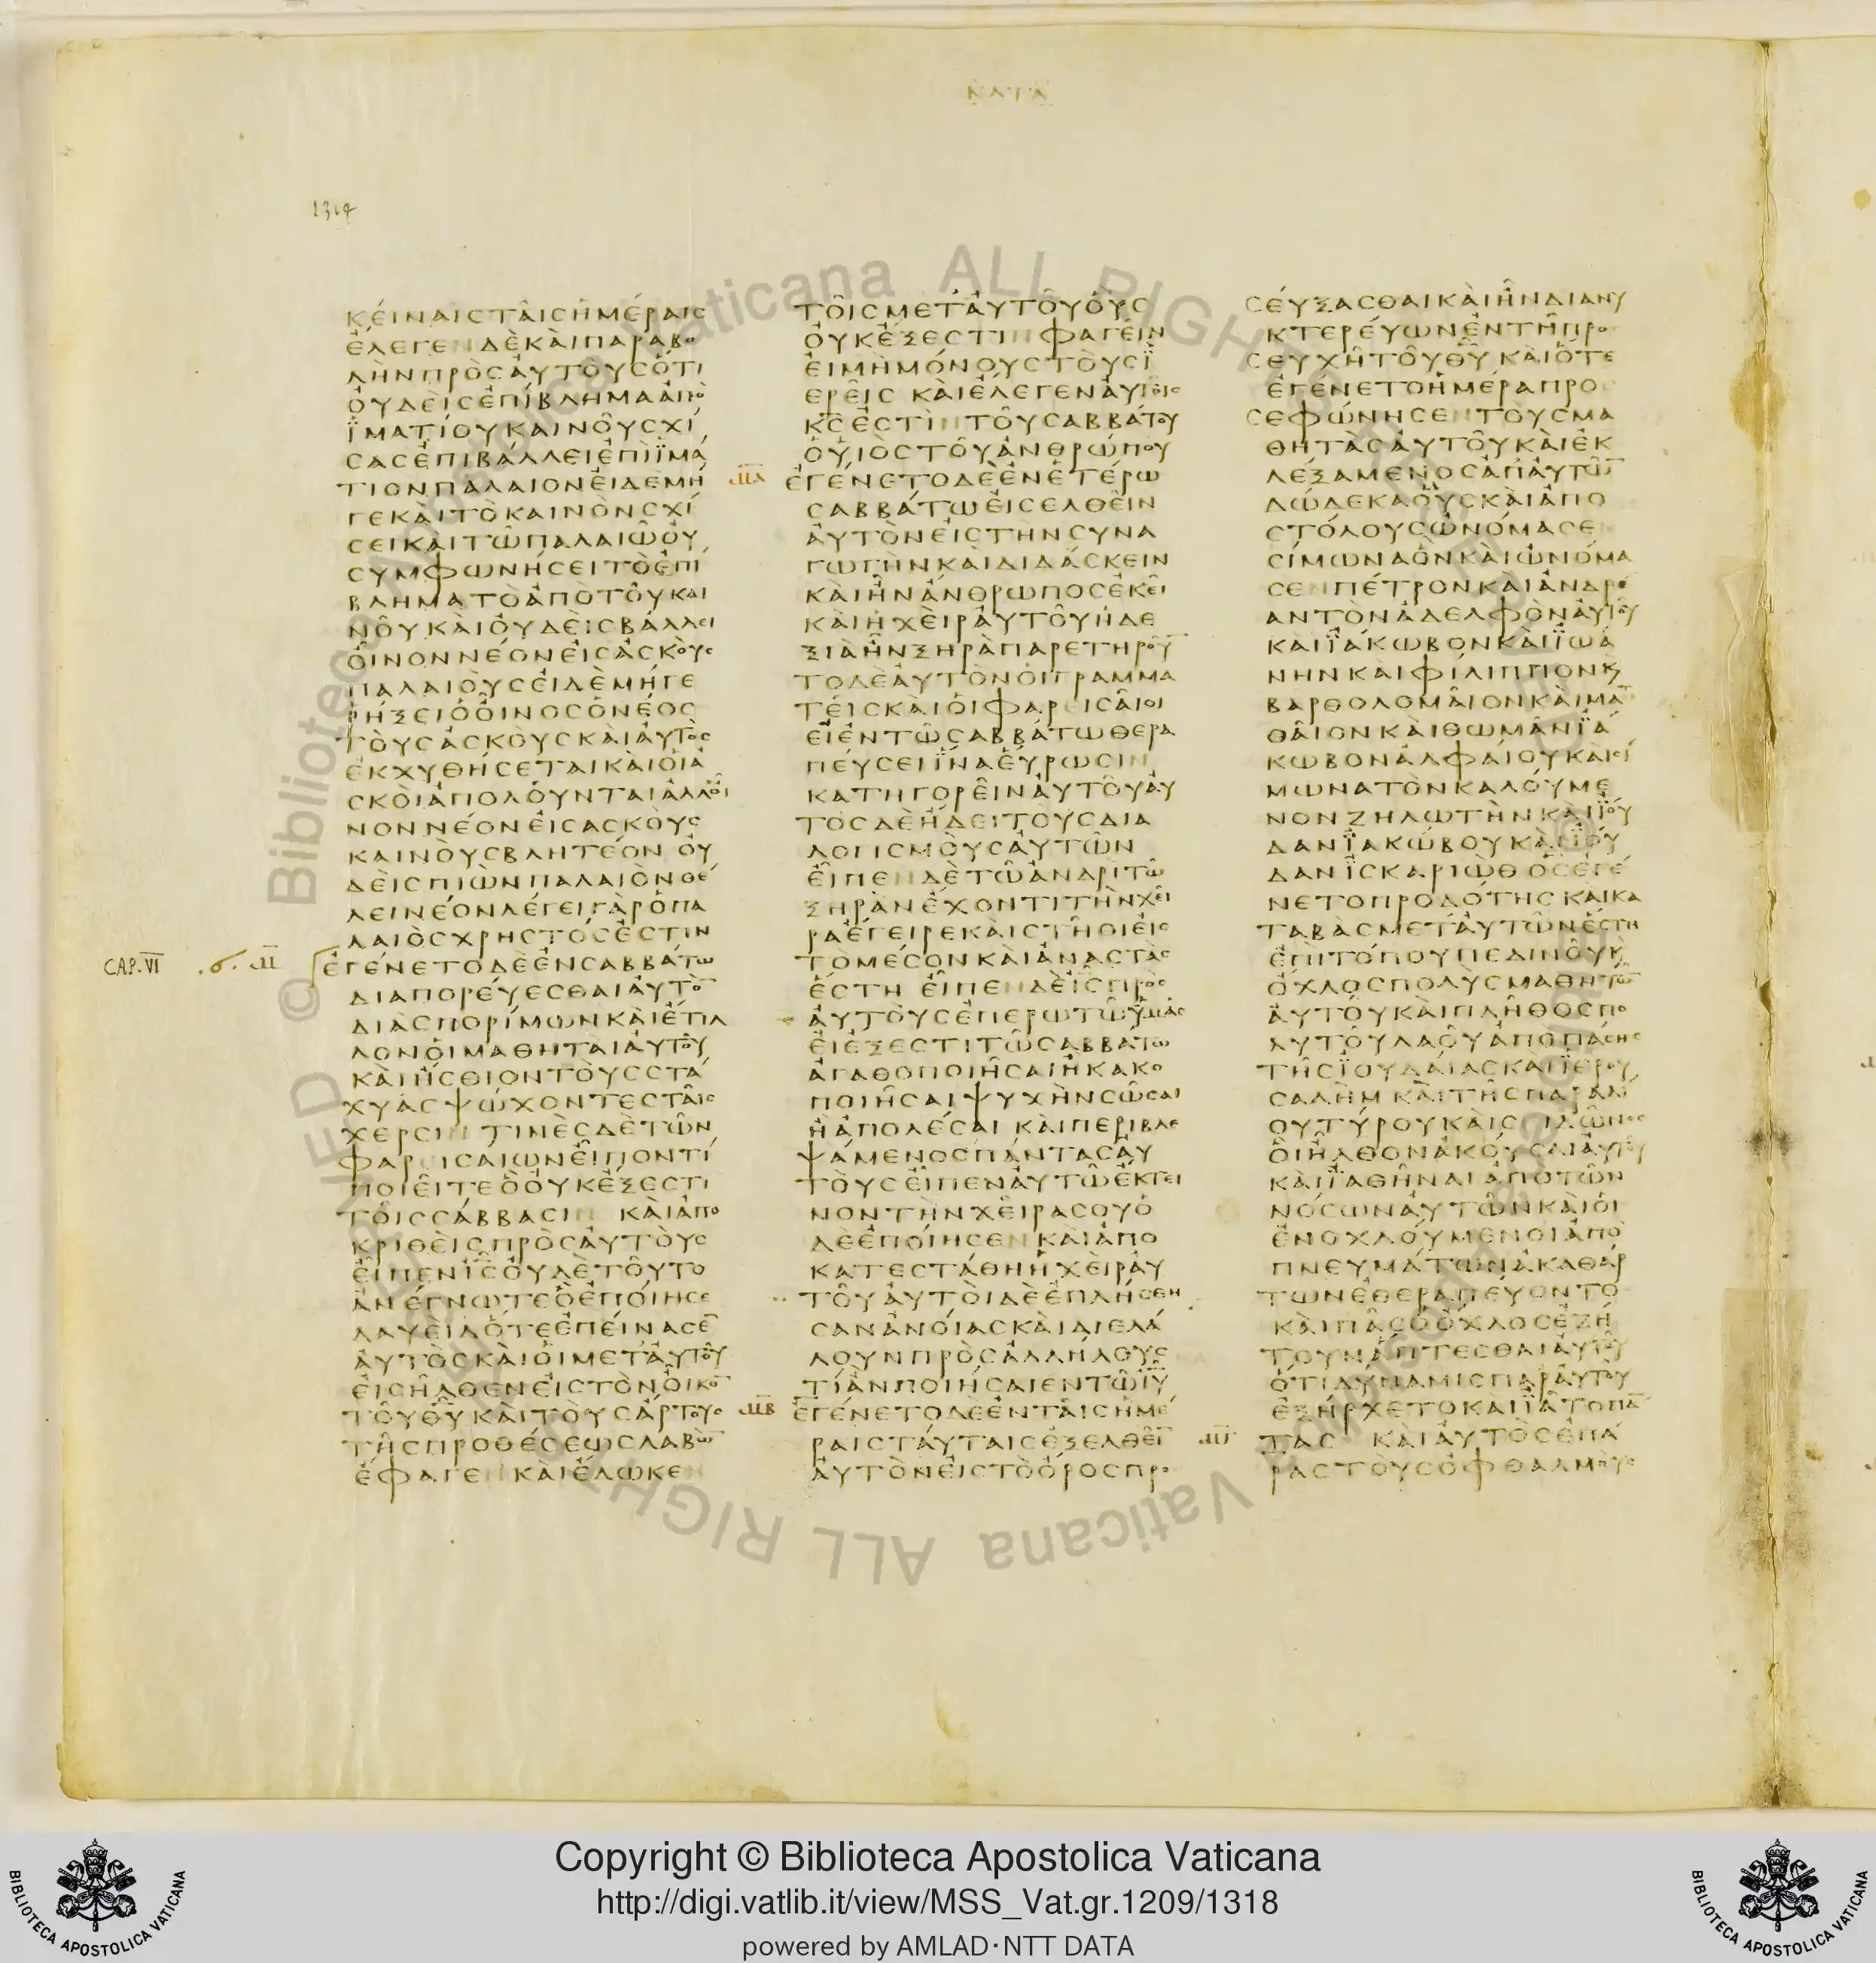 ΚΑΤΑ
1314
ΚΕΙΝΑΙΣΤΑΙΣΗΜΕΡΑΙΣ
ΕΛΕΓΕΝΔΕΚΑΙΠΑΡΑΒΟ
ΛΗΝΠΡΟΣΑΥΤΟΥΣΟΤΙ
ΟΥΔΕΙΣΕΠΙΒΛΗΜΑΑΠΟ
ΪΜΑΤΙΟΥΚΑΙΝΟΥΣΧΙ
ΣΑΣΕΠΙΒΑΛΛΕΙΕΠΙΪΜΑ
ΤΙΟΝΠΑΛΑΙΟΝΕΙΔΕΜΗ
ΓΕΚΑΙΤΟΚΑΙΝΟΝΣΧΙ
ΣΕΙΚΑΙΤΩΠΑΛΑΙΩΟΥ
ΣΥΜΦΩΝΗΣΕΙΤΟΕΠΙ
ΒΛΗΜΑΤΟΑΠΟΤΟΥΚΑΙ
ΝΟΥΚΑΙΟΥΔΕΙΣΒΑΛΛΕΙ
ΟΙΝΟΝΝΕΟΝΕΙΣΑΣΚΟΥΣ
ΠΑΛΑΙΟΥΣΕΙΔΕΜΗΓΕ
ΡΗΞΕΙΟΟΙΝΟΣΟΝΕΟΣ
ΤΟΥΣΑΣΚΟΥΣΚΑΙΑΥΤΟΣ
ΕΚΧΥΘΗΣΕΤΑΙΚΑΙΟΙΑ
ΣΚΟΙΑΠΟΛΟΥΝΤΑΙΑΛΛΟΙ
ΝΟΝΝΕΟΝΕΙΣΑΣΚΟΥΣ
ΚΑΙΝΟΥΣΒΛΗΤΕΟΝ ΟΥ
ΔΕΙΣΠΙΩΝΠΑΛΑΙΟΝΘΕ
ΛΕΙΝΕΟΝΛΕΓΕΙΓΑΡΟΠΑ
ΛΑΙΟΣΧΡΗΣΤΟΣΕΣΤΙΝ
CAP. VI ϛ Μ̅ ΕΓΕΝΕΤΟΔΕΕΝΣΑΒΒΑΤΩ
ΔΙΑΠΟΡΕΥΕΣΘΑΙΑΥΤΟ̅
ΔΙΑΣΠΟΡΙΜΩΝΚΑΙΕΤΙΛ
ΛΟΝΟΙΜΑΘΗΤΑΙΑΥΤΟΥ
ΚΑΙΗΣΘΙΟΝΤΟΥΣΣΤΑ
ΧΥΑΣΨΩΧΟΝΤΕΣΤΑΙΣ
ΧΕΡΣΙΝ ΤΙΝΕΣΔΕΤΩΝ
ΦΑΡΕΙΣΑΙΩΝΕΙΠΟΝΤΙ
ΠΟΙΕΙΤΕΟΟΥΚΕΞΕΣΤΙ
ΤΟΙΣΣΑΒΒΑΣΙΝ ΚΑΙΑΠΟ
ΚΡΙΘΕΙΣΠΡΟΣΑΥΤΟΥΣ
ΕΙΠΕΝΙ̅Σ̅ΟΥΔΕΤΟΥΤΟ
ΑΝΕΓΝΩΤΕΟΕΠΟΙΗΣΕ
ΔΑΥΕΙΔΟΤΕΕΠΕΙΝΑΣΕ̅
ΑΥΤΟΣΚΑΙΟΙΜΕΤΑΥΤΟΥ
ΕΙΣΗΛΘΕΝΕΙΣΤΟΝΟΙΚΟ̅
ΤΟΥΘ̅Υ̅ΚΑΙΤΟΥΣΑΡΤΟΥΣ
ΤΗΣΠΡΟΘΕΣΕΩΣΛΑΒΩ̅
ΕΦΑΓΕΝΚΑΙΕΔΩΚΕΝ
ΤΟΙΣΜΕΤΑΥΤΟΥΟΥΣ
ΟΥΚΕΞΕΣΤΙΝΦΑΓΕΙΝ
ΕΙΜΗΜΟΝΟΥΣΤΟΥΣΪ
ΕΡΕΙΣ ΚΑΙΕΛΕΓΕΝΑΥΤΟΙΣ
ΚΣΕΣΤΙΝΤΟΥΣΑΒΒΑΤΟΥ
ΟΥΙΟΣΤΟΥΑΝΘΡΩΠΟΥ
ΜΑ ΕΓΕΝΕΤΟΔΕΕΝΕΤΕΡΩ
ΣΑΒΒΑΤΩΕΙΣΕΛΘΕΙΝ
ΑΥΤΟΝΕΙΣΤΗΝΣΥΝΑ
ΓΩΓΗΝΚΑΙΔΙΔΑΣΚΕΙΝ
ΚΑΙΗΝΑΝΘΡΩΠΟΣΕΚΕΙ
ΚΑΙΗΧΕΙΡΑΥΤΟΥΗΔΕ
ΞΙΑΗΝΞΗΡΑΠΑΡΕΤΗΡΟΥ̅
ΤΟΔΕΑΥΤΟΝΟΙΓΡΑΜΜΑ
ΤΕΙΣΚΑΙΟΙΦΑΡΕΙΣΑΙΟΙ
ΕΙΕΝΤΩΣΑΒΒΑΤΩΘΕΡΑ
ΠΕΥΣΕΙΪΝΑΕΥΡΩΣΙΝ
ΚΑΤΗΓΟΡΕΙΝΑΥΤΟΥΑΥ
ΤΟΣΔΕΗΔΕΙΤΟΥΣΔΙΑ
ΛΟΓΙΣΜΟΥΣΑΥΤΩΝ
ΕΙΠΕΝΔΕΤΩΑΝΔΡΙΤΩ
ΞΗΡΑΝΕΧΟΝΤΙΤΗΝΧΕΙ
ΡΑΕΓΕΙΡΕΚΑΙΣΤΗΘΙΕΙΣ
ΤΟΜΕΣΟΝΚΑΙΑΝΑΣΤΑΣ
ΕΣΤΗ ΕΙΠΕΝΔΕΙ̅Σ̅ΠΡΟΣ
ΑΥΤΟΥΣΕΠΕΡΩΤΩΫΜΑΣ
ΕΙΕΞΕΣΤΙΤΩΣΑΒΒΑΤΩ
ΑΓΑΘΟΠΟΙΗΣΑΙΗΚΑΚΟ
ΠΟΙΗΣΑΙΨΥΧΗΝΣΩΣΑΙ
ΗΑΠΟΛΕΣΑΙ ΚΑΙΠΕΡΙΒΛΕ
ΨΑΜΕΝΟΣΠΑΝΤΑΣΑΥ
ΤΟΥΣΕΙΠΕΝΑΥΤΩΕΚΤΕΙ
ΝΟΝΤΗΝΧΕΙΡΑΣΟΥΟ
ΔΕΕΠΟΙΗΣΕΝΚΑΙΑΠΟ
ΚΑΤΕΣΤΑΘΗΗΧΕΙΡΑΥ
ΤΟΥΑΥΤΟΙΔΕΕΠΛΗΣΘΗ
ΣΑΝΑΝΟΙΑΣΚΑΙΔΙΕΛΑ
ΛΟΥΝΠΡΟΣΑΛΛΗΛΟΥΣ
ΤΙΑΝΠΟΙΗΣΑΙΕΝΤΩΙ̅Υ̅
ΜΒ ΕΓΕΝΕΤΟΔΕΕΝΤΑΙΣΗΜΕ
ΡΑΙΣΤΑΥΤΑΙΣΕΞΕΛΘΕΙ̅
ΑΥΤΟΝΕΙΣΤΟΟΡΟΣΠΡΟ
ΣΕΥΞΑΣΘΑΙΚΑΙΗΝΔΙΑΝΥ
ΚΤΕΡΕΥΩΝΕΝΤΗΠΡΟ
ΣΕΥΧΗΤΟΥΘ̅Υ̅ ΚΑΙΟΤΕ
ΕΓΕΝΕΤΟΗΜΕΡΑΠΡΟ
ΣΕΦΩΝΗΣΕΝΤΟΥΣΜΑ
ΘΗΤΑΣΑΥΤΟΥΚΑΙΕΚ
ΛΕΞΑΜΕΝΟΣΑΠΑΥΤΩ̅
ΔΩΔΕΚΑΟΥΣΚΑΙΑΠΟ
ΣΤΟΛΟΥΣΩΝΟΜΑΣΕ
ΣΙΜΩΝΑΟΝΚΑΙΩΝΟΜΑ
ΣΕΝΠΕΤΡΟΝΚΑΙΑΝΔΡΕ
ΑΝΤΟΝΑΔΕΛΦΟΝΑΥΤΟΥ
ΚΑΙΪΑΚΩΒΟΝΚΑΙΪΩΑ
ΝΗΝΚΑΙΦΙΛΙΠΠΟΝΚ
ΒΑΡΘΟΛΟΜΑΙΟΝΚΑΙΜΑ
ΘΑΙΟΝΚΑΙΘΩΜΑΝΪΑ
ΚΩΒΟΝΑΛΦΑΙΟΥΚΑΙΣΙ
ΜΩΝΑΤΟΝΚΑΛΟΥΜΕ
ΝΟΝΖΗΛΩΤΗΝΚΑΙΪΟΥ
ΔΑΝΪΑΚΩΒΟΥΚΑΙΪΟΥ
ΔΑΝΪΣΚΑΡΙΩΘ ΟΣΕΓΕ
ΝΕΤΟΠΡΟΔΟΤΗΣ ΚΑΙΚΑ
ΤΑΒΑΣΜΕΤΑΥΤΩΝΕΣΤΗ
ΕΠΙΤΟΠΟΥΠΕΔΙΝΟΥΚ
ΟΧΛΟΣΠΟΛΥΣΜΑΘΗΤΩ̅
ΑΥΤΟΥΚΑΙΠΛΗΘΟΣΠΟ
ΛΥΤΟΥΛΑΟΥΑΠΟΠΑΣΗΣ
ΤΗΣΪΟΥΔΑΙΑΣΚΑΙΪΕΡΟΥ
ΣΑΛΗΜ ΚΑΙΤΗΣΠΑΡΑΛΙ
ΟΥΤΥΡΟΥΚΑΙΣΙΔΩΝΟΣ
ΟΙΗΛΘΟΝΑΚΟΥΣΑΙΑΥΤΟΥ
ΚΑΙΪΑΘΗΝΑΙΑΠΟΤΩΝ
ΝΟΣΩΝΑΥΤΩΝΚΑΙΟΙ
ΕΝΟΧΛΟΥΜΕΝΟΙΑΠΟ
ΠΝΕΥΜΑΤΩΝΑΚΑΘΑΡ
ΤΩΝΕΘΕΡΑΠΕΥΟΝΤΟ
ΚΑΙΠΑΣΟΟΧΛΟΣΕΖΗ
ΤΟΥΝΑΠΤΕΣΘΑΙΑΥΤΟΥ
ΟΤΙΔΥΝΑΜΙΣΠΑΡΑΥΤΟΥ
ΕΞΗΡΧΕΤΟΚΑΙΪΑΤΟΠΑ̅
ΜΓ ΤΑΣ ΚΑΙΑΥΤΟΣΕΠΑ
ΡΑΣΤΟΥΣΟΦΘΑΛΜΟΥΣ
© Biblioteca Vaticana ALL RIGHT
Copyright © Biblioteca Apostolica Vaticana
http://digi.vatlib.it/view/MSS_Vat.gr.1209/1318
powered by AMLAD·NTT DATA
BIBLIOTECA APOSTOLICA VATICANA
BIBLIOTECA APOSTOLICA VATICANA